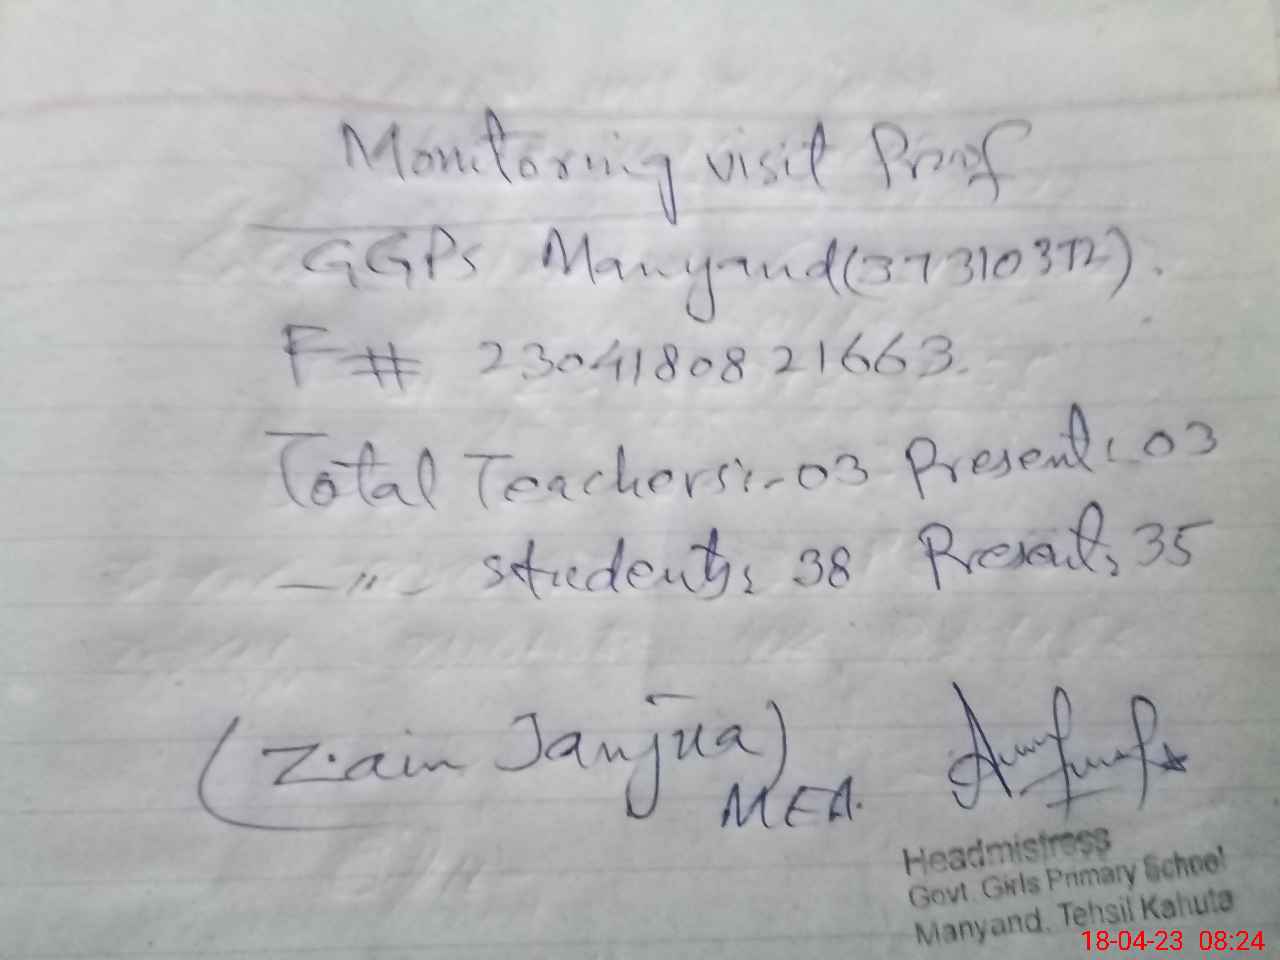 Monitoring visit Proof
GGPS Manyand (37310372).
F# 2304180821663.
Total Teachers:- 03 Present: 03
—〃— students: 38 Present: 35
(Zain Janjua)
MEA.
Headmistress
Govt. Girls Primary School
Manyand. Tehsil Kahuta
18-04-23 08:24